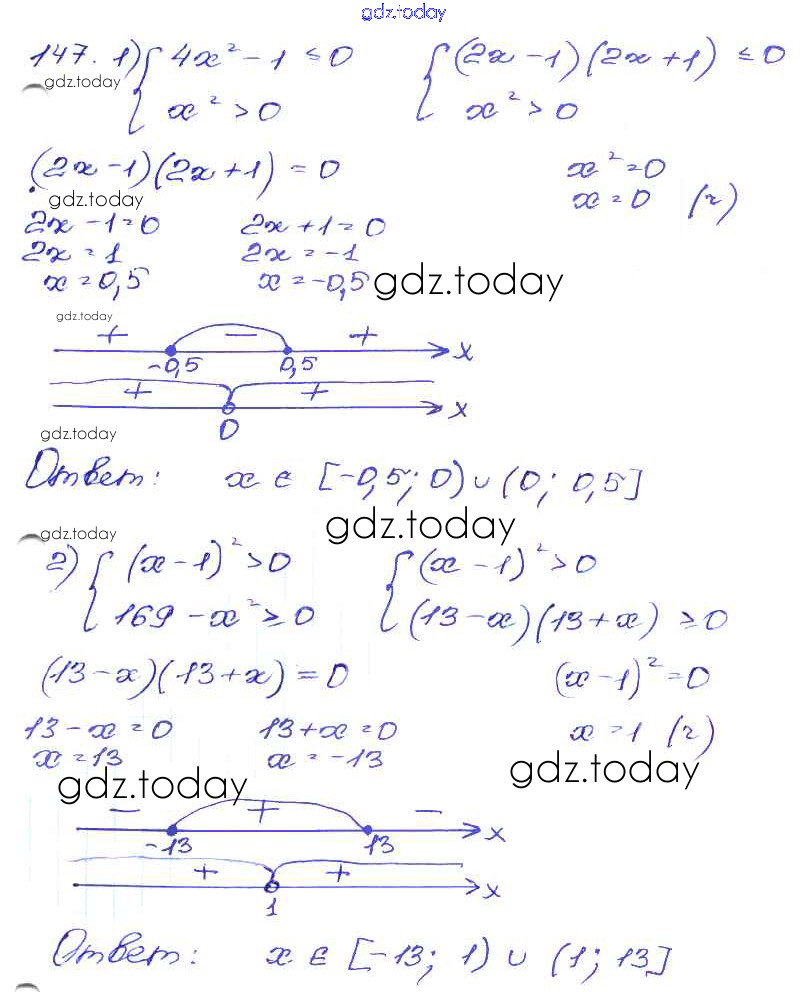 gdz.today
147. 1) { 4x² - 1 ≤ 0 { (2x - 1)(2x + 1) ≤ 0
gdz.today
x² > 0 x² > 0
(2x - 1)(2x + 1) = 0 x² = 0
gdz.today x = 0 (r)
2x - 1 = 0 2x + 1 = 0
2x = 1 2x = -1
x = 0,5 x = -0,5 gdz.today
gdz.today
+ - +
-0,5 0,5 x
+ +
0 x
gdz.today
Ответ: x ∈ [-0,5; 0) ∪ (0; 0,5]
gdz.today gdz.today
2) { (x - 1)² > 0 { (x - 1)² > 0
169 - x² ≥ 0 (13 - x)(13 + x) ≥ 0
(13 - x)(13 + x) = 0 (x - 1)² = 0
13 - x = 0 13 + x = 0 x = 1 (r)
x = 13 x = -13
gdz.today gdz.today
- + -
-13 13 x
+ +
1 x
Ответ: x ∈ [-13; 1) ∪ (1; 13]